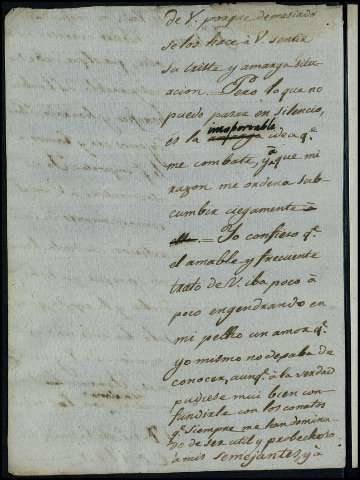 de V. porque demasiado
se los hace à V. sentir
su triste y amarga situ
acion. Pero lo que no
puedo pasar en silencio,
es la insoportable idea q.e
me combate, y à que mi
razon me ordena sub-
cumbir ciegamente
= Yo confieso q.e
el amable y frecuente
trato de V. iba poco à
poco engendrando en
mi pecho un amor q.e
yo mismo no dejaba de
conocer, aunq.e à la verdad
pudiese mui bien con
fundirle con los conatos
q.e siempre me han domina-
do de ser util y
à mis semejantes, y à